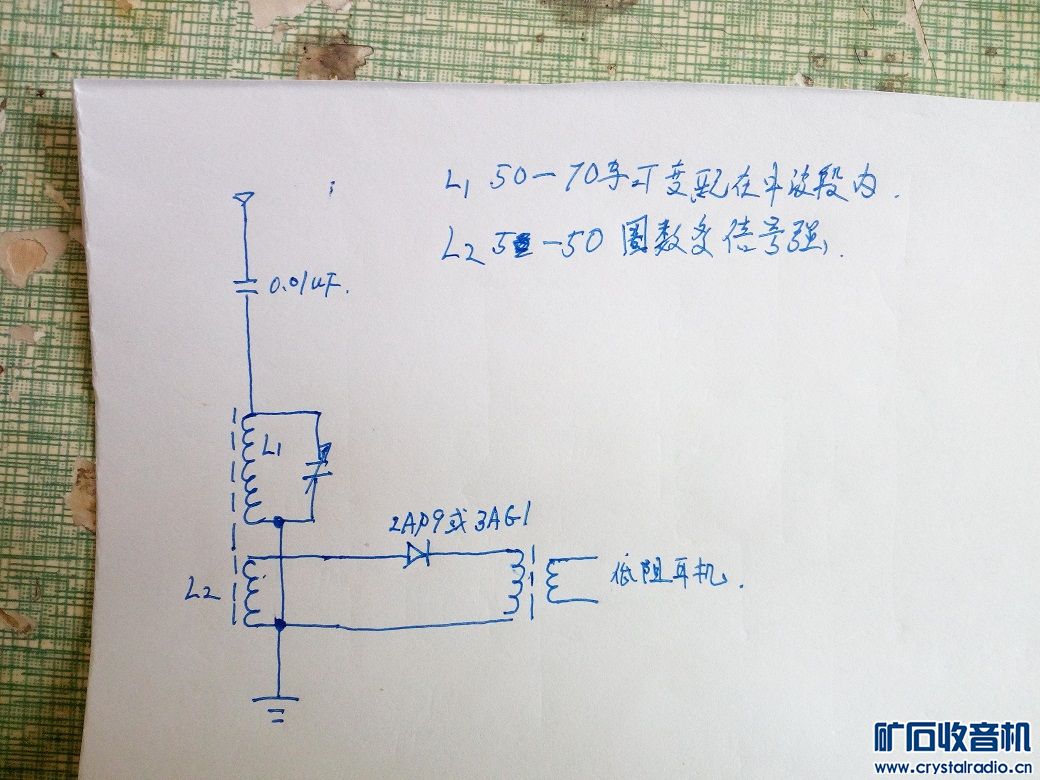 L1 50-70与可变配在中波段内.
L2 5-50 圈数多信号强.
0.01uF.
L1
2AP9或3AG1
L2
低阻耳机.
矿石收音机
www.crystalradio.cn